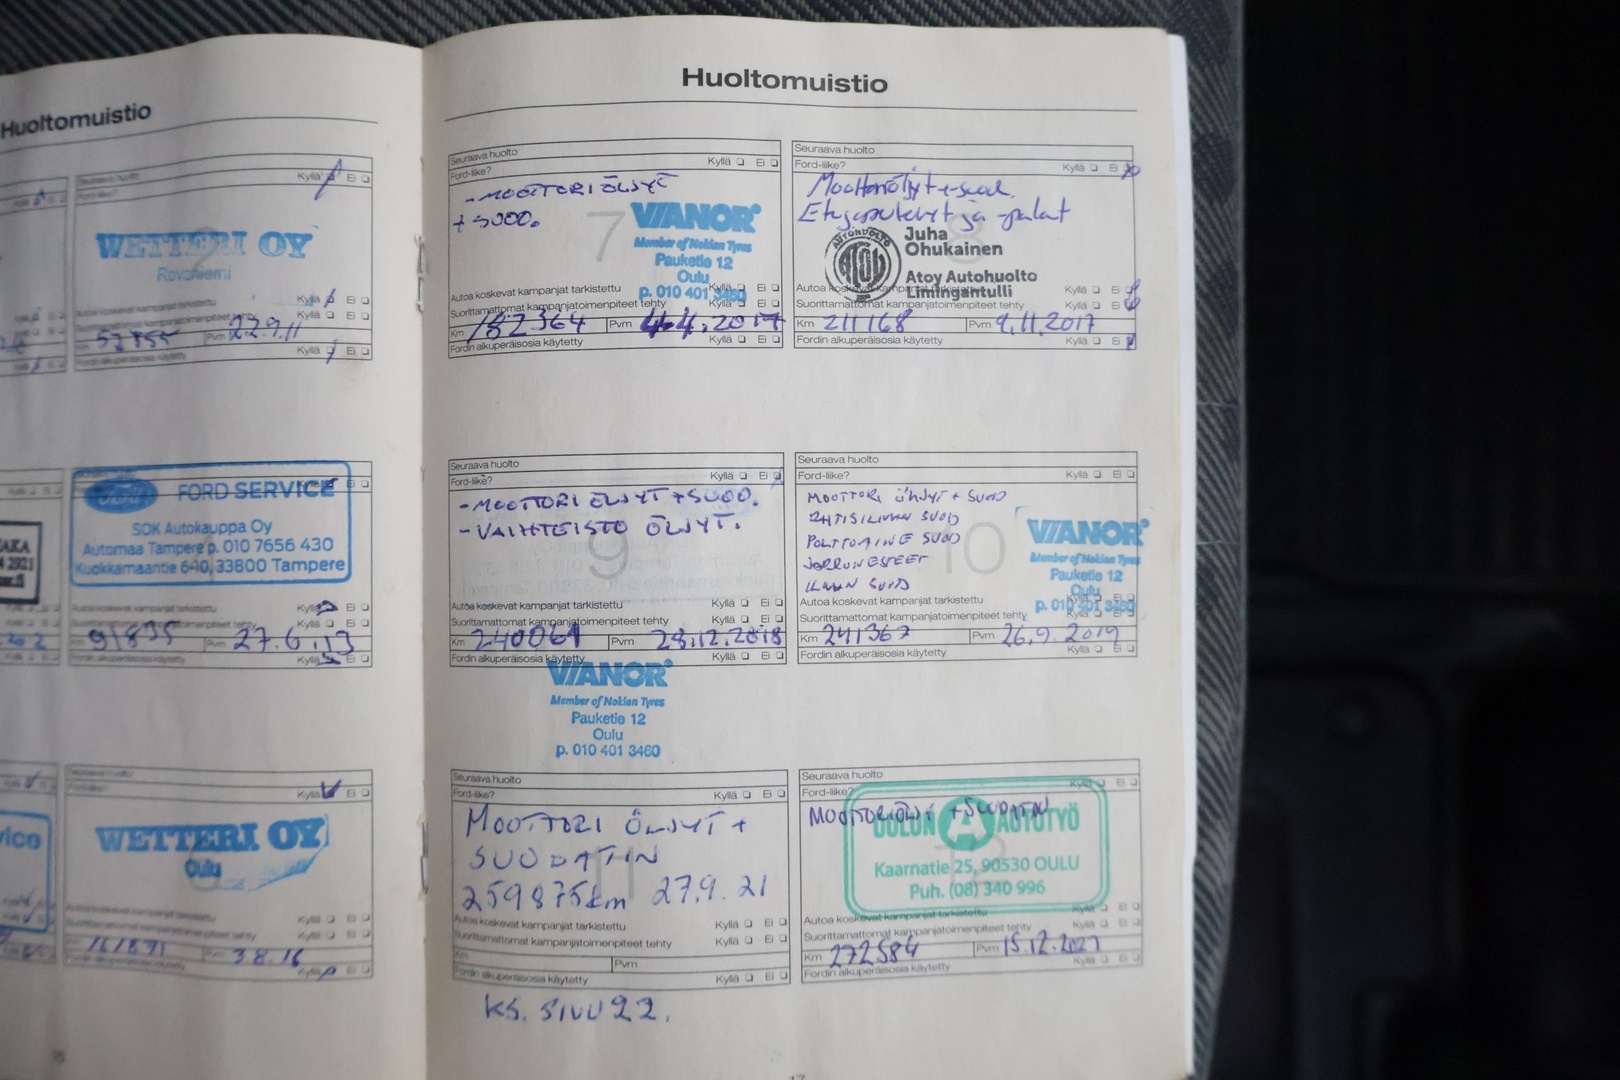 Huoltomuistio
Seuraava huolto
Ford-liike?
Kyllä Ei
WETTERI OY
Rovaniemi
Autoa koskevat kampanjat tarkistettu
Kyllä Ei
Suorittamattomat kampanjatoimenpiteet tehty
Kyllä Ei
57855 Pvm 22.9.11
Fordin alkuperäisosia käytetty Kyllä Ei
FORD SERVICE
SOK Autokauppa Oy
Automaa Tampere p. 010 7656 430
Kuokkamaantie 6-10, 33800 Tampere
Autoa koskevat kampanjat tarkistettu Kyllä Ei
Suorittamattomat kampanjatoimenpiteet tehty Kyllä Ei
91895 Pvm 27.6.13
Fordin alkuperäisosia käytetty Kyllä Ei
Seuraava huolto
Ford-liike? Kyllä Ei
WETTERI OY
Oulu
Autoa koskevat kampanjat tarkistettu Kyllä Ei
Suorittamattomat kampanjatoimenpiteet tehty Kyllä Ei
161871 Pvm 3.8.16
Fordin alkuperäisosia käytetty Kyllä Ei
Huoltomuistio
Seuraava huolto
Ford-liike? Kyllä Ei
- MOOTTORI ÖLJYT
+ SUOD.
7
VIANOR
Member of Nokian Tyres
Pauketie 12
Oulu
p. 010 401 3460
Autoa koskevat kampanjat tarkistettu Kyllä Ei
Suorittamattomat kampanjatoimenpiteet tehty Kyllä Ei
Km 182364 Pvm 4.4.2017
Fordin alkuperäisosia käytetty Kyllä Ei
Seuraava huolto
Ford-liike? Kyllä Ei
Moottoriöljyt + suod.
Etujarrulevyt ja -palat
8
AUTOHUOLTO
ATOY
Juha
Ohukainen
Atoy Autohuolto
Limingantulli
Autoa koskevat kampanjat tarkistettu Kyllä Ei
Suorittamattomat kampanjatoimenpiteet tehty Kyllä Ei
Km 211168 Pvm 9.11.2017
Fordin alkuperäisosia käytetty Kyllä Ei
Seuraava huolto
Ford-liike? Kyllä Ei
- MOOTTORI ÖLJYT + SUOD.
- VAIHTEISTO ÖLJYT.
9
Autoa koskevat kampanjat tarkistettu Kyllä Ei
Suorittamattomat kampanjatoimenpiteet tehty Kyllä Ei
Km 240061 Pvm 28.12.2018
Fordin alkuperäisosia käytetty Kyllä Ei
VIANOR
Member of Nokian Tyres
Pauketie 12
Oulu
p. 010 401 3460
Seuraava huolto
Ford-liike? Kyllä Ei
MOOTTORI ÖLJYT + SUOD
RAITISILMAN SUOD
POLTTOAINE SUOD
JARRUNESTEET
ILMAN SUOD
10
VIANOR
Member of Nokian Tyres
Pauketie 12
Oulu
p. 010 401 3460
Autoa koskevat kampanjat tarkistettu Kyllä Ei
Suorittamattomat kampanjatoimenpiteet tehty Kyllä Ei
Km 241367 Pvm 26.9.2019
Fordin alkuperäisosia käytetty Kyllä Ei
Seuraava huolto
Ford-liike? Kyllä Ei
MOOTTORI ÖLJYT +
SUODATIN
259875km 27.9.21
11
Autoa koskevat kampanjat tarkistettu Kyllä Ei
Suorittamattomat kampanjatoimenpiteet tehty Kyllä Ei
Km Pvm
Fordin alkuperäisosia käytetty Kyllä Ei
KS. SIVU 22.
Seuraava huolto
Ford-liike? Kyllä Ei
MOOTTORIÖLJY + SUODATIN
OULUN A AUTOTYÖ
12
Kaarnatie 25, 90530 OULU
Puh. (08) 340 996
Autoa koskevat kampanjat tarkistettu Kyllä Ei
Suorittamattomat kampanjatoimenpiteet tehty Kyllä Ei
Km 272584 Pvm 15.12.2021
Fordin alkuperäisosia käytetty Kyllä Ei